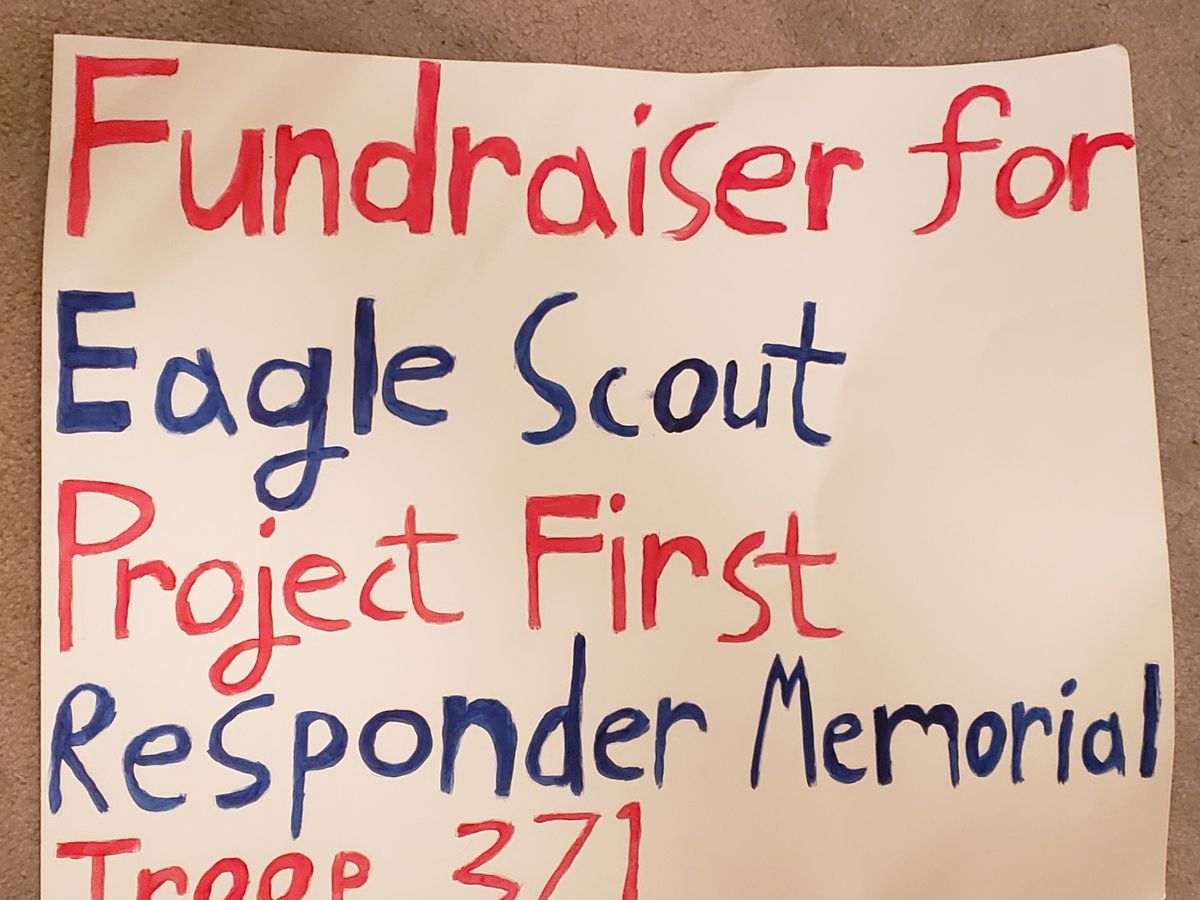 Fundraiser for
Eagle Scout
Project First
Responder Memorial
Troop 371